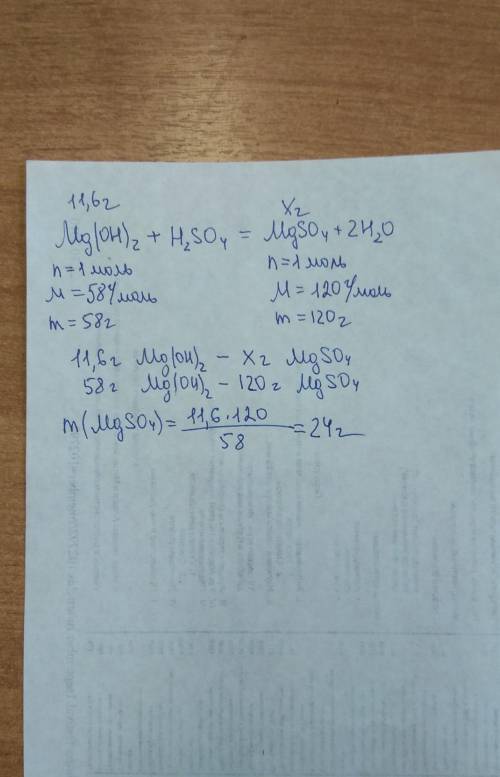 11,6г
Xг
Mg(OH)₂ + H₂SO₄ = MgSO₄ + 2H₂O
n = 1 моль
n = 1 моль
M = 58г/моль
M = 120г/моль
m = 58г
m = 120г
11,6г Mg(OH)₂ – Xг MgSO₄
58г Mg(OH)₂ – 120г MgSO₄
m(MgSO₄) = 11,6·120 / 58 = 24г